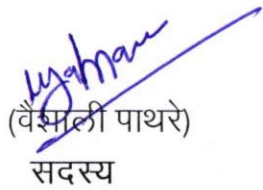 (वैशाली पाथरे)
सदस्य